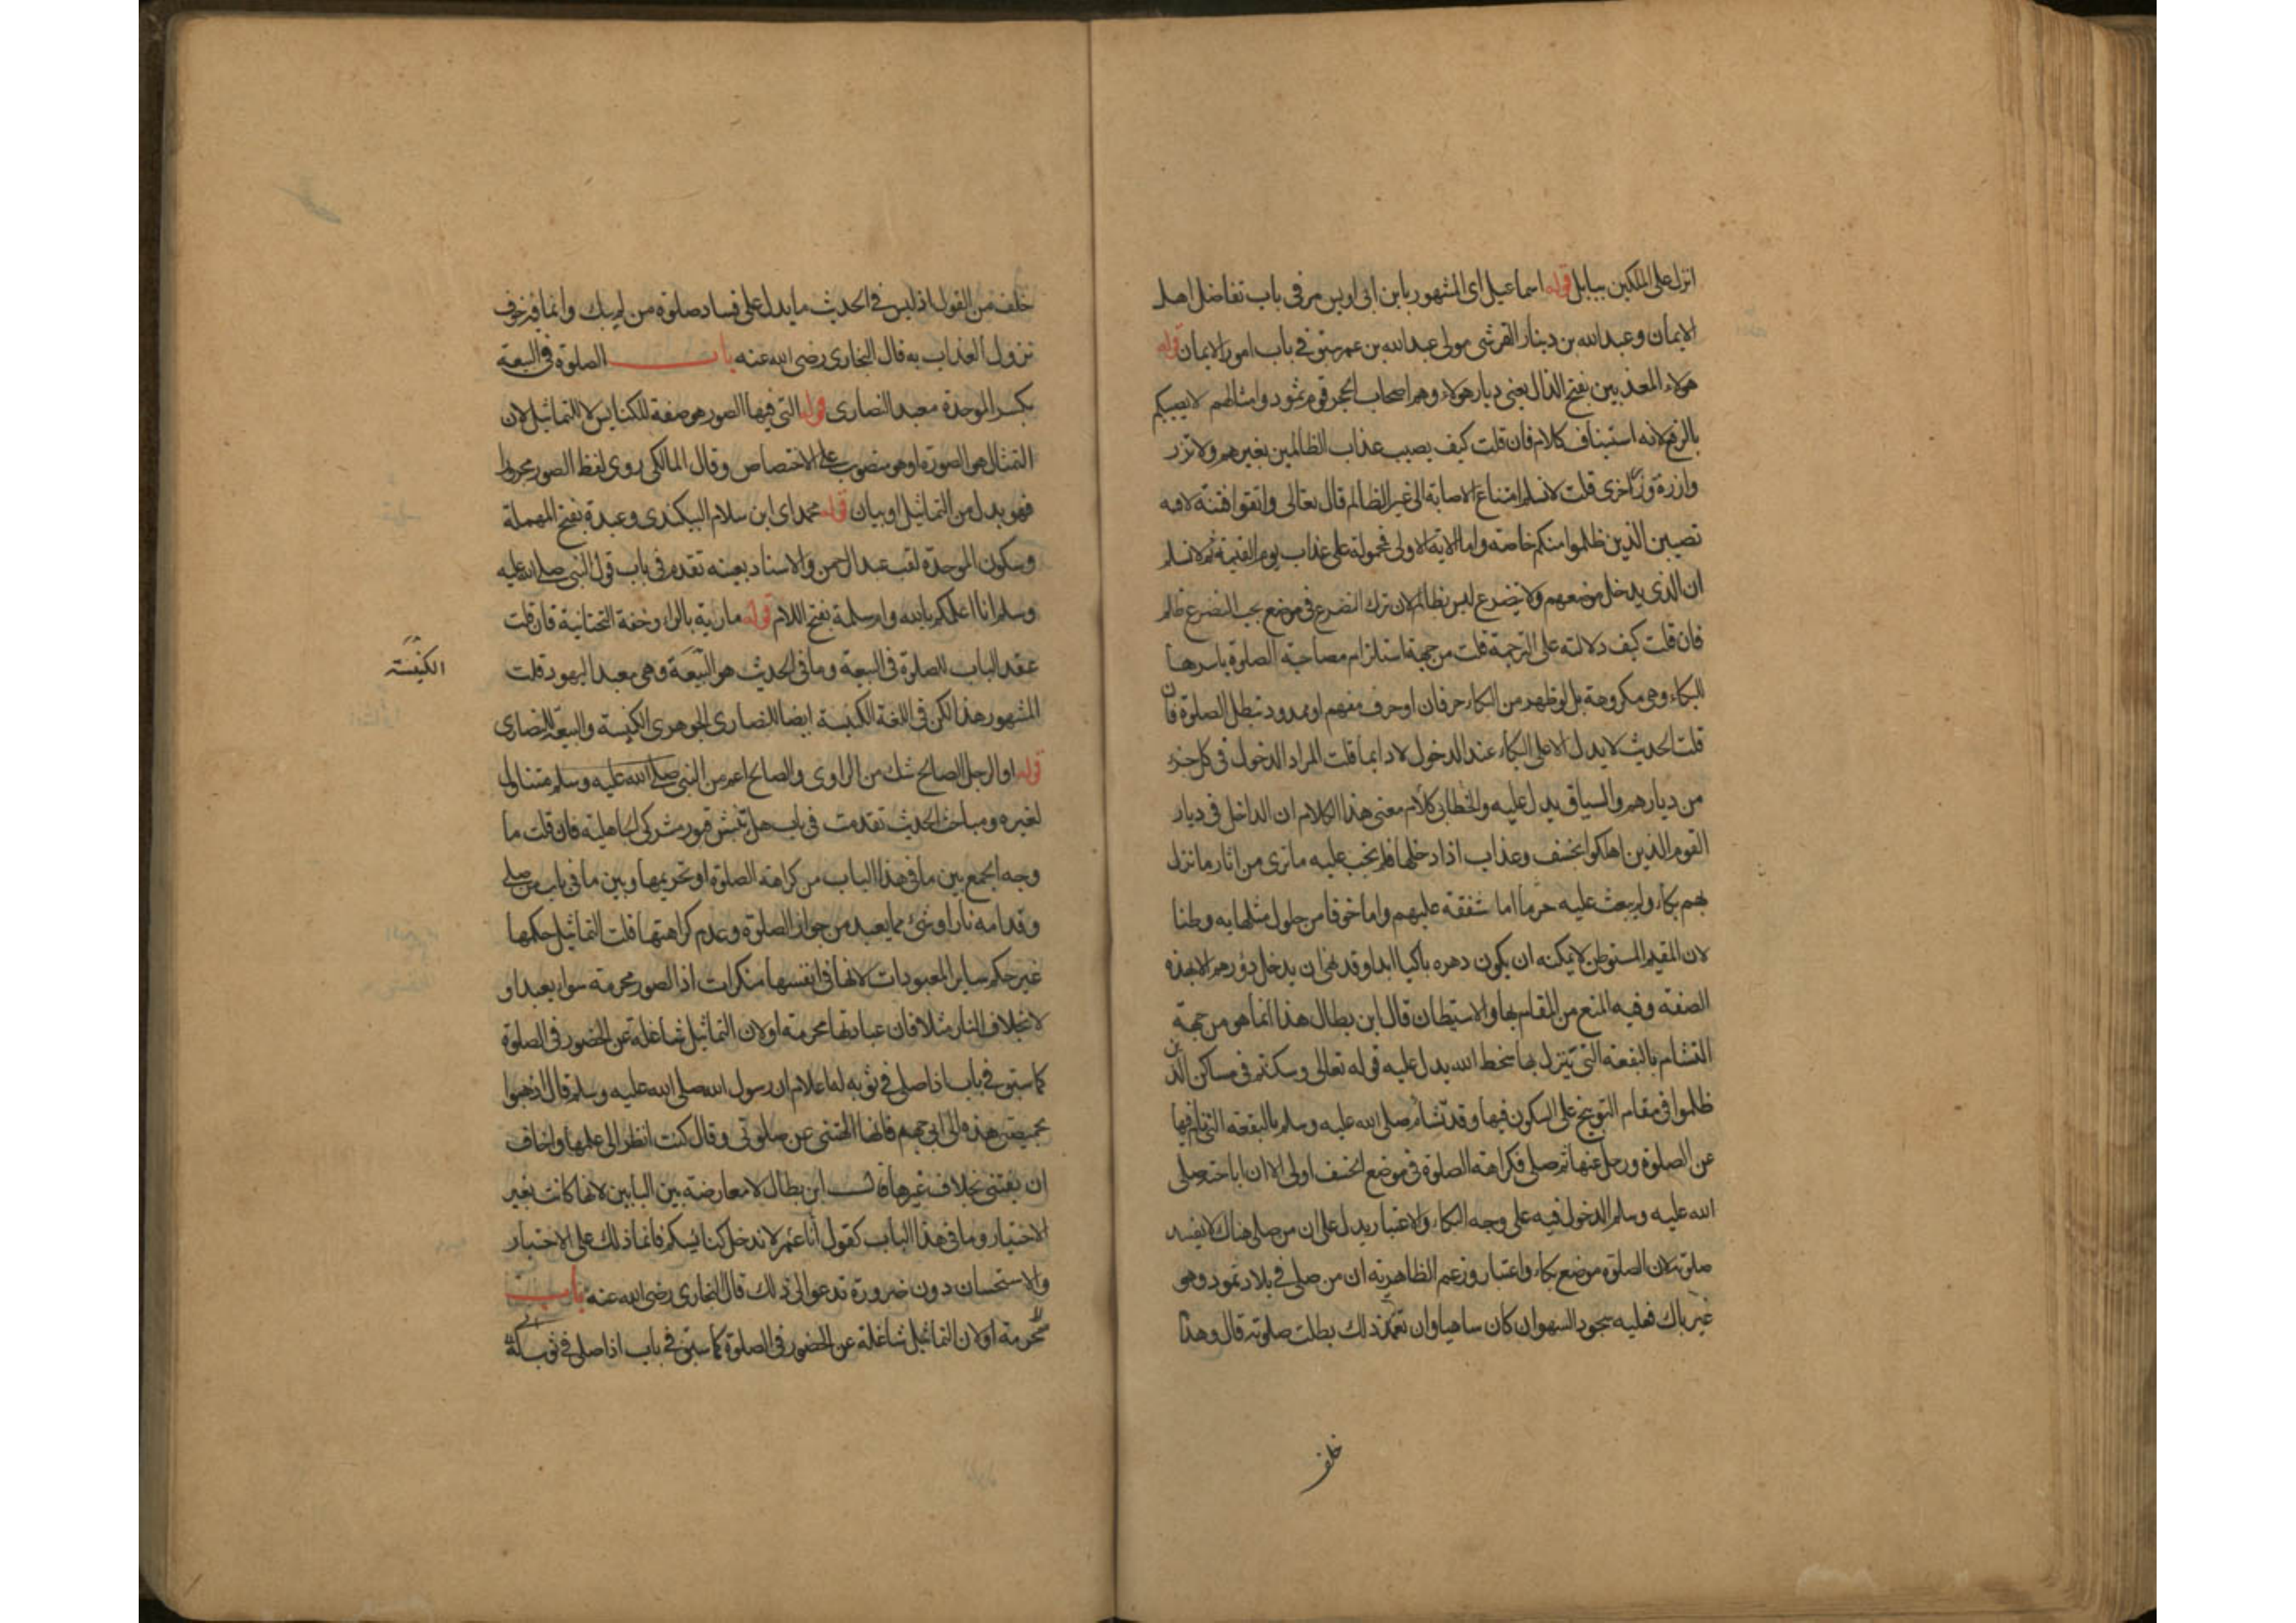 انزل على الملكين ببابل قوله اسماعيل اى المشهور بابن ابى اويس مر فى باب تفاضل اهل
الايمان وعبد الله بن دينار القرشى مولى عبد الله بن عمر سبق فى باب امور الايمان قوله
هولاء المعذبين بفتح الذال يعنى ديار هولاء وهم اصحاب الحجر قوم ثمود وامثالهم لا يصيبكم
بالرفع لانه استيناف كلام فان قلت كيف يصيب عذاب الظالمين بغيرهم ولا تزر
وازرة وزر اخرى قلت لا نسلم امتناع الاصابة الى غير الظالم قال تعالى واتقوا فتنة لا
تصيبن الذين ظلموا منكم خاصة واما الاية الاولى فمحمولة على عذاب يوم القيمة ثم لا نسلم
ان الذى يدخل موضعهم ولا يتضرع ليس بظالم لان ترك التضرع فى موضع يجب التضرع ظلم
فان قلت كيف دلالته على الترجمة قلت من جهة استلزام مصاحبة الصلوة باسرها
للبكاء وهى مكروهة بل لو ظهر من البكاء حرفان او حرف مفهم او ممدود تبطل الصلوة فان
قلت الحديث لا يدل الا على البكاء عند الدخول لا دايما قلت المراد الدخول فى كل جزء
من ديارهم والسياق يدل عليه والخطابى كلام معنى هذا الكلام ان الداخل فى ديار
القوم الذين اهلكوا بخسف وعذاب اذا دخلها فلم يجب عليه ما ترى من اثار ما نزل
بهم بكاء ولم يبعث عليه حزما اما شفقة عليهم واما خوفا من حلول مثلها به وطنا
لان المقيم المستوطن لا يمكنه ان يكون دهره باكيا ابدا وقد نهى ان يدخل دورهم الا بهذه
الصفة وفيه المنع من المقام بها والاستيطان قال ابن بطال هذا انما هو من جهة
التشام بالبقعة التى ينزل بها سخط الله يدل عليه قوله تعالى وسكنتم فى مساكن الذين
ظلموا فى مقام التوبيخ على السكون فيها وقد تشام صلى الله عليه وسلم بالبقعة التى نام فيها
عن الصلوة ورحل عنها ثم صلى فكراهة الصلوة فى موضع الخسف اولى الا ان اباحته صلى
الله عليه وسلم الدخول فيه على وجه البكاء والاعتبار يدل على ان من صلى هناك لا يفسد
صلوته لان الصلوة موضع بكاء واعتبار وزعم الظاهرية ان من صلى فى بلاد ثمود وهو
غير باك فعليه سجود السهو ان كان ساهيا وان تعمد ذلك بطلت صلوته قال وهذا
خلف
خلف من القول اذ ليس فى الحديث ما يدل على فساد صلوة من لم يبك وانما فيه خوف
نزول العذاب به قال البخارى رضى الله عنه باب الصلوة فى البيعة
بكسر الموحدة معبد النصارى قوله التى فيها الصور هو صفة للكنايس لا للتماثيل لان
التمثال هو الصورة او هو منصوب على الاختصاص وقال المالكى روى لفظ الصور مجرورا
فهو بدل من التماثيل او بيان قوله محمد اى ابن سلام البيكندى وعبدة بفتح المهملة
وسكون الموحدة لقب عبد الرحمن والاسناد بعينه تقدم فى باب قول النبى صلى الله عليه
وسلم انا اعلمكم بالله وام سلمة بفتح اللام قوله مارية بالراء وخفة التحتانية فان قلت
عقد الباب للصلوة فى البيعة وما فى الحديث هو البيعة وهى معبد اليهود قلت
الكنيسة
المشهور هذا لكن فى اللغة الكنيسة ايضا للنصارى الجوهرى الكنيسة والبيعة للنصارى
قوله او الرجل الصالح شك من الراوى والصالح اعم من النبى صلى الله عليه وسلم متناول
لغيره ومباحث الحديث تقدمت فى باب هل تنبش قبور مشركى الجاهلية فان قلت ما
وجه الجمع بين ما فى هذا الباب من كراهة الصلوة او تحريمها وبين ما فى باب من صلى
وقدامه نار او شئ مما يعبد من جواز الصلوة وعدم كراهتها قلت التماثيل حكمها
غير حكم ساير المعبودات لانها فى انفسها منكرات اذ الصور محرمة سواء يعبد او
لا بخلاف النار مثلا فان عبادتها محرمة او لان التماثيل شاغلة عن الحضور فى الصلوة
كما سبق فى باب اذا صلى فى ثوب له اعلام ان رسول الله صلى الله عليه وسلم قال اذهبوا
بخميصتى هذه الى ابى جهم فانها الهتنى عن صلوتى وقال كنت انظر الى علمها واخاف
ان يفتننى بخلاف غيرها قال ابن بطال لا معارضة بين البابين لانها كانت بغير
الاختيار وما فى هذا الباب كقول عمر انا لا ندخل كنائسكم فانما ذلك على الاختيار
والاستحسان دون ضرورة تدعوا الى ذلك قال البخارى رضى الله عنه باب
محرمة او لان التماثيل شاغلة عن الحضور فى الصلوة كما سبق فى باب اذا صلى فى ثوب له